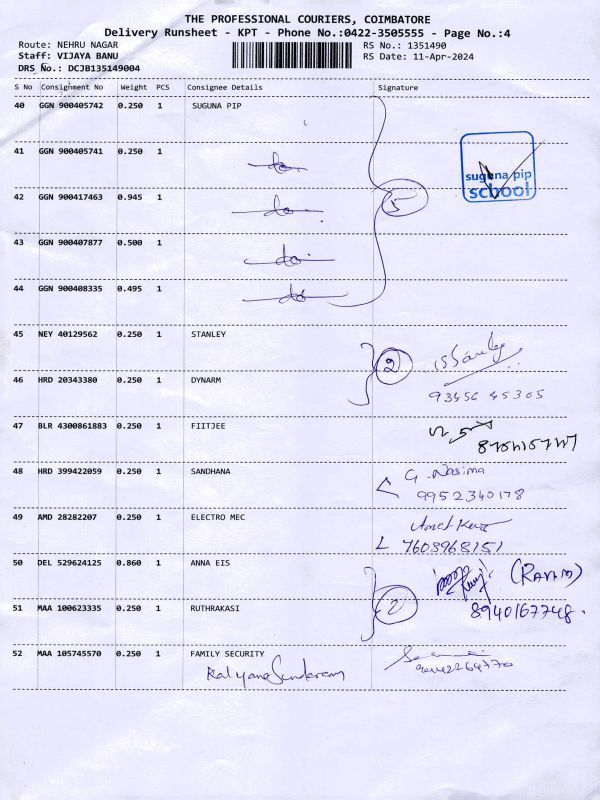 THE PROFESSIONAL COURIERS, COIMBATORE
Delivery Runsheet - KPT - Phone No.:0422-3505555 - Page No.:4
Route: NEHRU NAGAR RS No.: 1351490
Staff: VIJAYA BANU RS Date: 11-Apr-2024
DRS No.: DCJB135149004
S No Consignment No Weight PCS Consignee Details Signature
40 GGN 900405742 0.250 1 SUGUNA PIP
41 GGN 900405741 0.250 1 do
suguna pip
school
42 GGN 900417463 0.945 1 do 5
43 GGN 900407877 0.500 1 do
44 GGN 900408335 0.495 1 do
45 NEY 40129562 0.250 1 STANLEY
2
46 HRD 20343380 0.250 1 DYNARM 93456 45305
47 BLR 4300861883 0.250 1 FIITJEE
48 HRD 399422059 0.250 1 SANDHANA G. Nasima
9952340178
49 AMD 28282207 0.250 1 ELECTRO MEC
7603968151
50 DEL 529624125 0.860 1 ANNA EIS
2
51 MAA 100623335 0.250 1 RUTHRAKASI 8940167748.
52 MAA 105745570 0.250 1 FAMILY SECURITY
Kalyana Sundaram